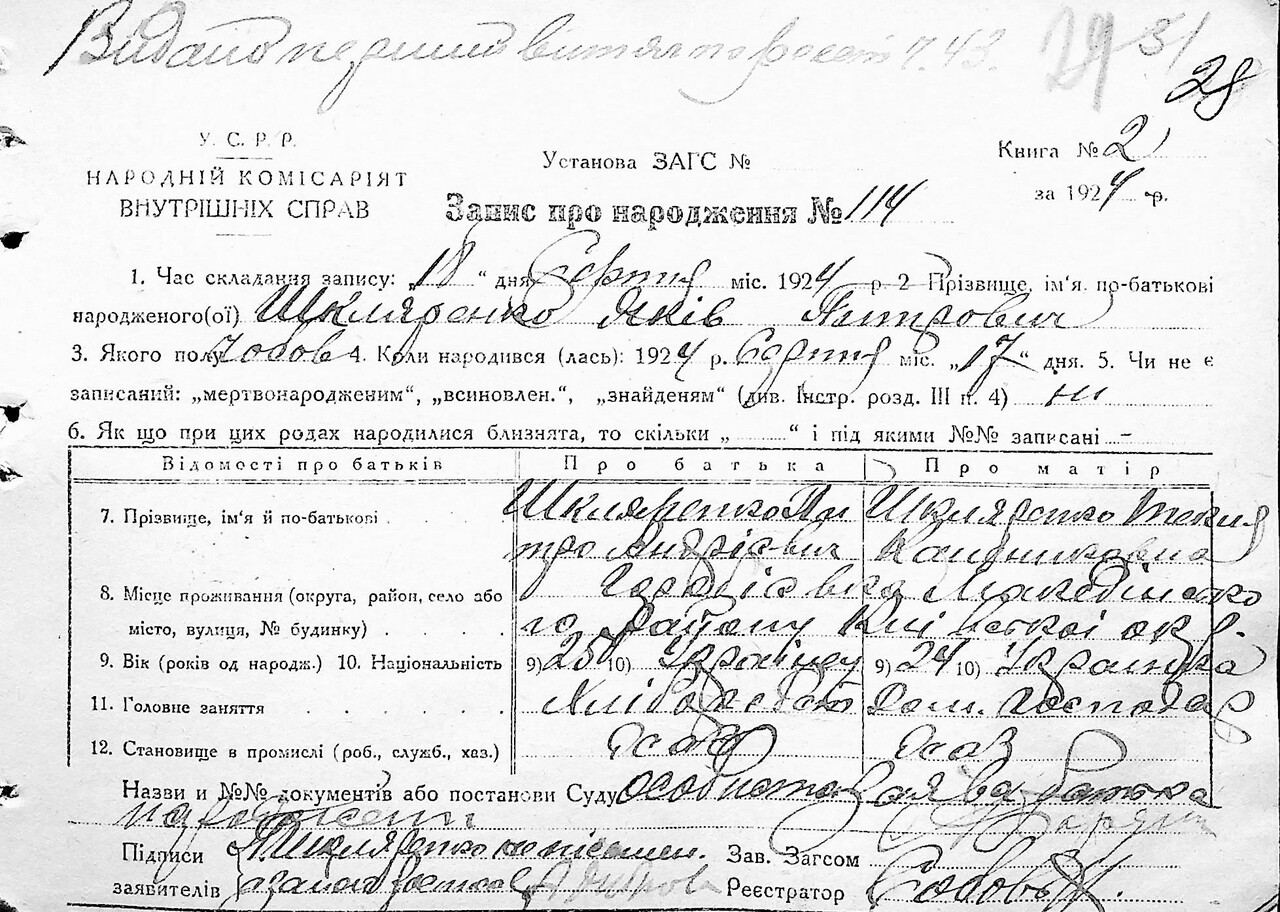 Видано перший витяг по 7.43.
29 31
28
У. С. Р. Р.
НАРОДНІЙ КОМІСАРІЯТ
ВНУТРІШНІХ СПРАВ
Установа ЗАГС №
Книга № 2
за 1924 р.
Запис про народження № 114
1. Час складання запису: „18“ дня Серпня міс. 1924 р. 2 Прізвище, ім'я, по-батькові
народженого(ої) Шкляренко Яків Петрович
3. Якого полу Чолов 4. Коли народився (лась): 1924 р. Серпня міс. „17“ дня. 5. Чи не є
записаний: „мертвонародженим“, „всиновлен.“, „знайденям“ (див. Інстр. розд. III п. 4) ні
6. Як що при цих родах народилися близнята, то скільки „ “ і під якими №№ записані –
Відомості про батьків Про батька Про матір
7. Прізвище, ім'я й по-батькові Шкляренко Пе Шкляренко Текля
тро Андрієвич
8. Місце проживання (округа, район, село або
місто, вулиця, № будинку) го Району Київської окр.
9. Вік (років од народж.) 10. Національність 9) 25 10) 9) 24 10) Українка
11. Головне заняття Хліборобство Дом. Господар
12. Становище в промислі (роб., служб., хаз.)
Назви и №№ документів або постанови Суду особиста заява батька
Підписи Шкляренко неписьмен. Зав. Загсом
заявителів Реєстратор